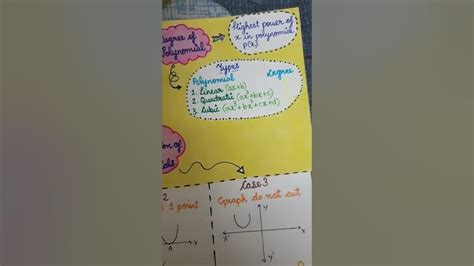 Degree of
Polynomial
Highest power of
x in polynomial
p(x).
Types
Polynomial Degree
1. Linear (ax+b)
2. Quadratic (ax²+bx+c)
3. Cubic (ax³+bx²+cx+d)
on of
ials
2
1 point
A
X
Case 3
Graph do not cut
Y
X'
X
Y'